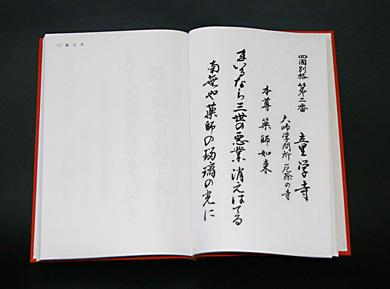 四国別格 第二番 童学寺
大師学問所 厄除の寺
本尊 薬師如来
まいるなら三世の悪業消えはてる
南無や薬師の瑠璃の光に